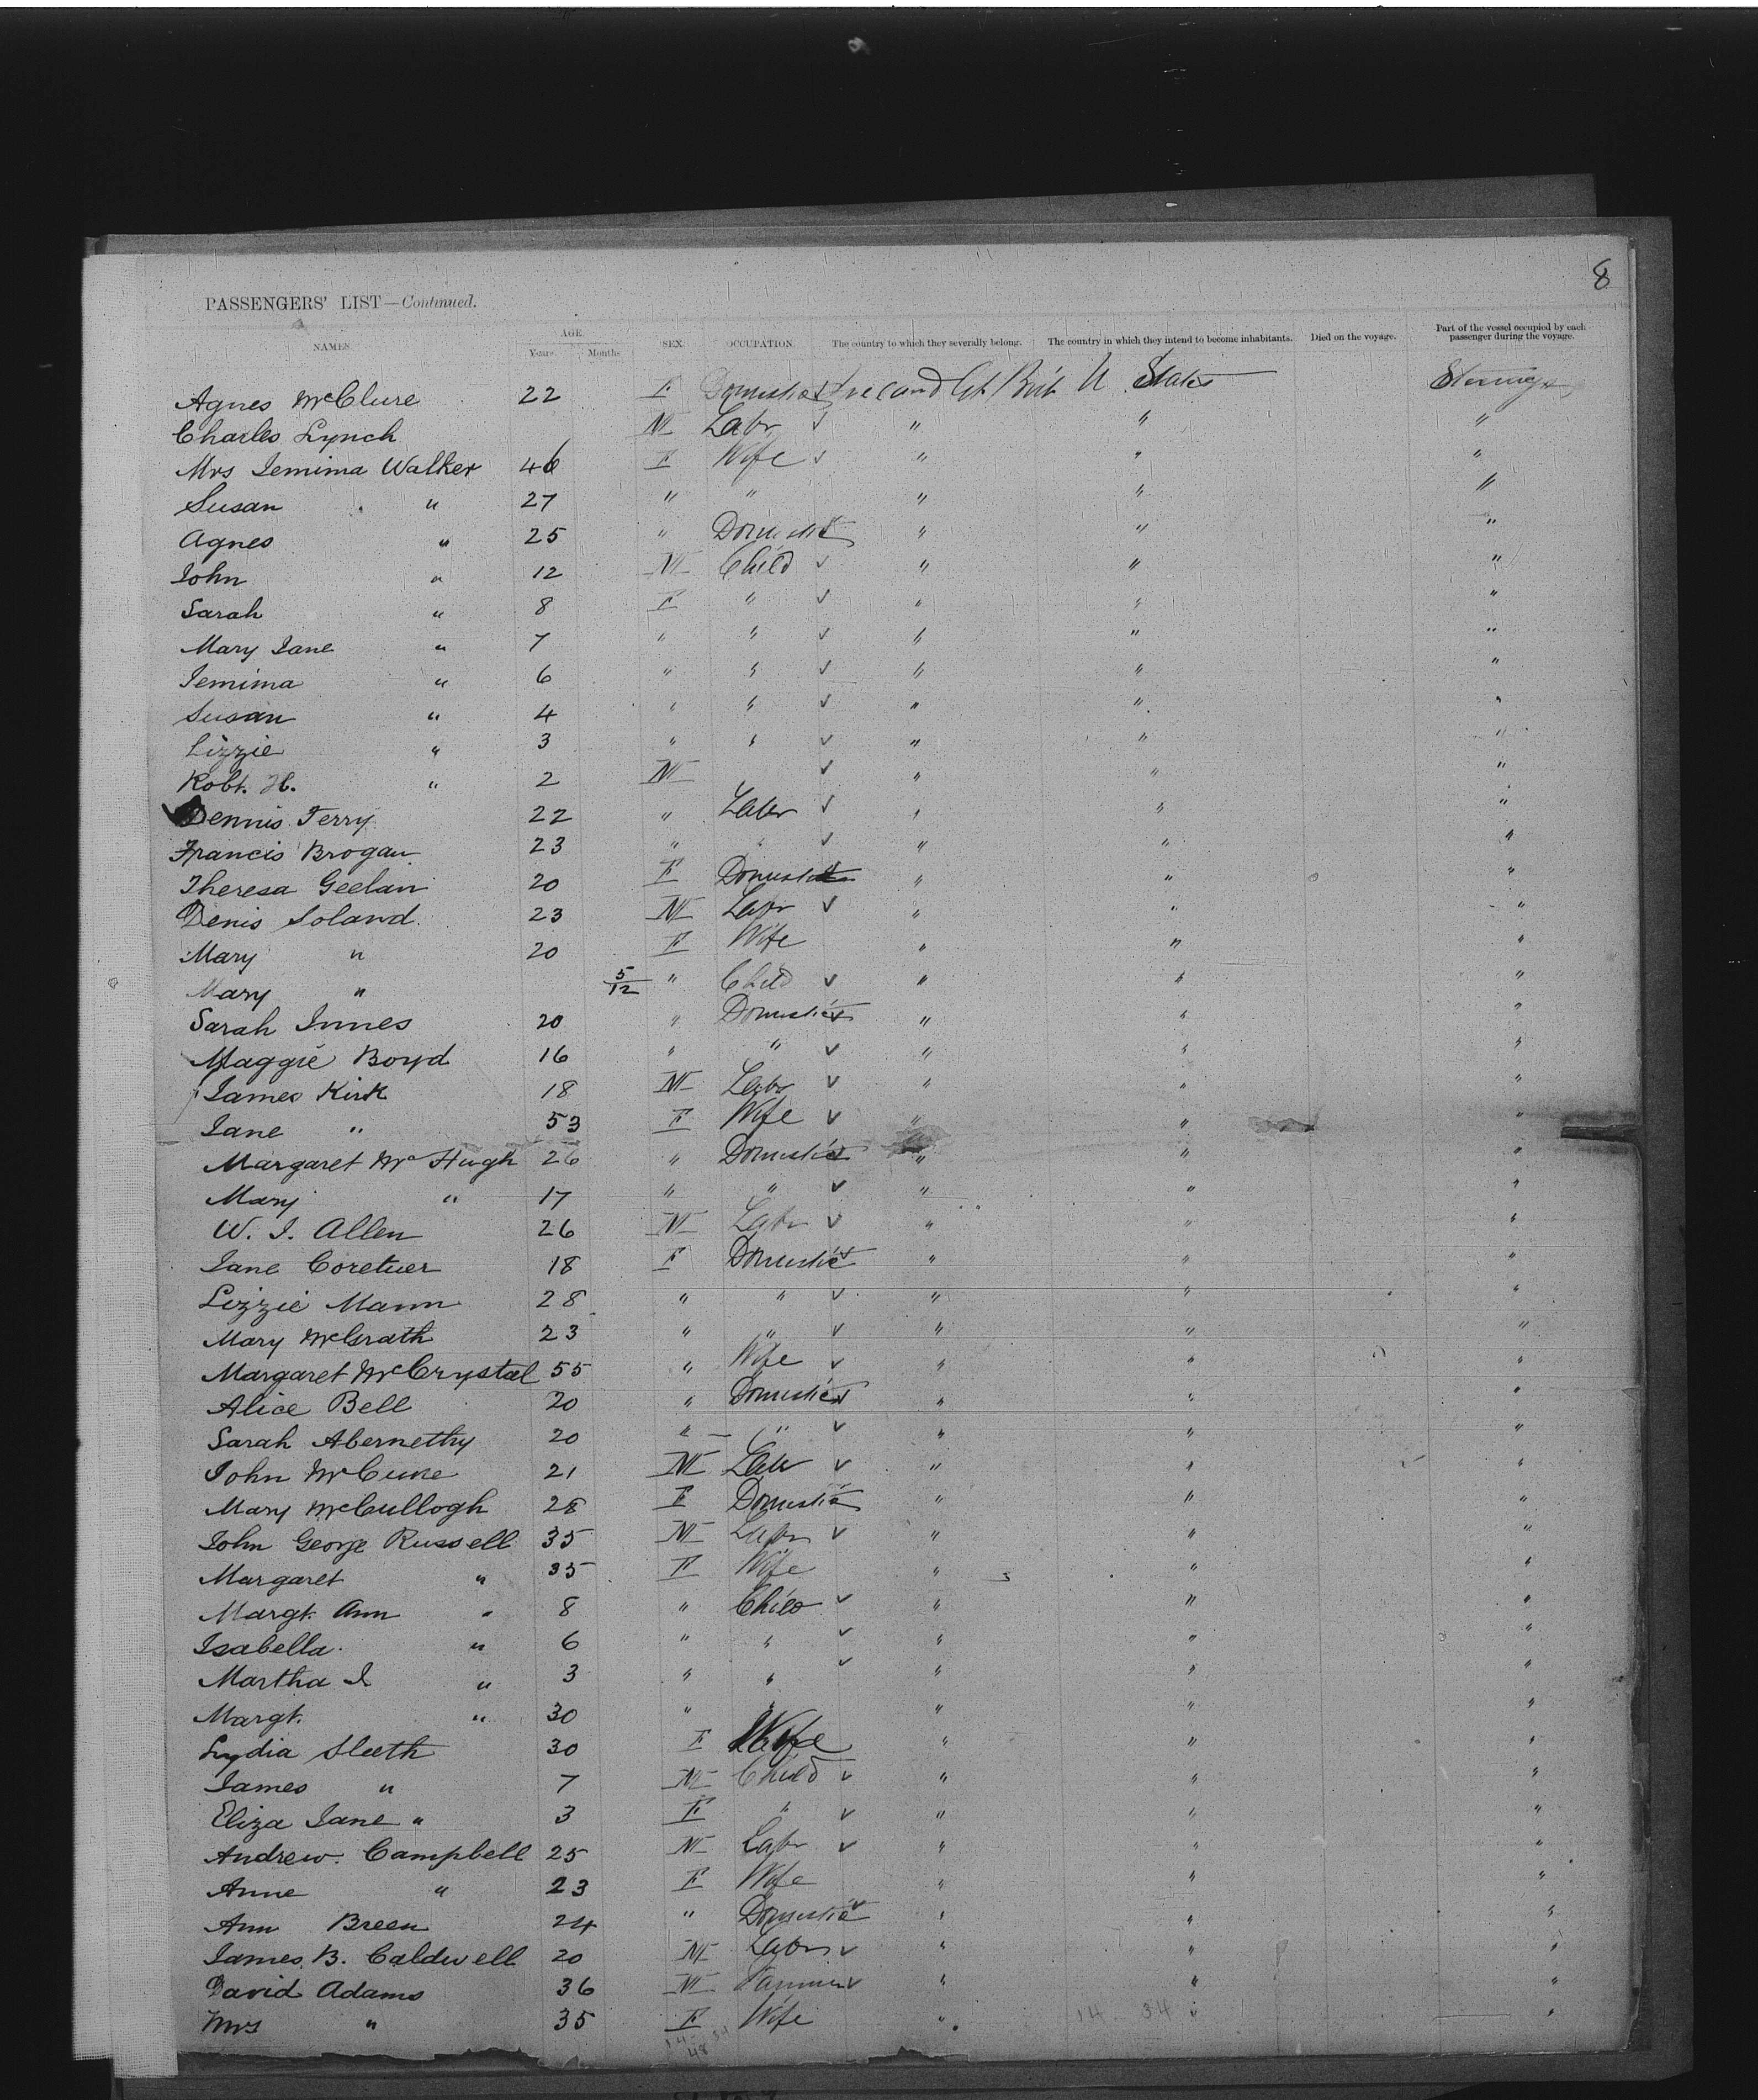 8
PASSENGERS' LIST—Continued.
NAMES. AGE. Years. Months. SEX. OCCUPATION. The country to which they severally belong. The country in which they intend to become inhabitants. Died on the voyage. Part of the vessel occupied by each passenger during the voyage.
Agnes McClure 22 F Domestic Ireland Gt Brit U States
Charles Lynch M Labr " " "
Mrs Jemima Walker 46 F Wife " " "
Susan " 27 " " " " "
Agnes " 25 " Domestic " " "
John " 12 M Child " " "
Sarah " 8 F " " " "
Mary Jane " 7 " " " " "
Jemima " 6 " " " " "
Susan " 4 " " " " "
Lizzie " 3 " " " " "
Robt. H. " 2 M " " "
Dennis Terry 22 " Labr " " "
Francis Brogan 23 " " " " "
Theresa Geelan 20 F Domestic " " "
Denis Soland 23 M Labr " " "
Mary " 20 F Wife " " "
Mary " 5/12 " Child " " "
Sarah Innes 20 " Domestic " " "
Maggie Boyd 16 " " " " "
James Kirk 18 M Labr " " "
Jane " 53 F Wife " " "
Margaret McHugh 26 " Domestic " " "
Mary " 17 " " " " "
W. J. Allen 26 M Labr " " "
Jane 18 F Domestic " " "
Lizzie Mann 28 " " " " "
Mary McGrath 23 " " " " "
Margaret McCrystal 55 " Wife " " "
Alice Bell 20 " Domestic " " "
Sarah Abernethy 20 " " " " "
John McCune 21 M Labr " " "
Mary McCullogh 28 F Domestic " " "
John George Russell 35 M Labr " " "
Margaret " 35 F Wife " " "
Margt. Ann " 8 " Child " " "
Isabella " 6 " " " " "
Martha J " 3 " " " " "
Margt. " 30 " " " " "
Lydia Sleeth 30 F Wife " " "
James " 7 M Child " " "
Eliza Jane " 3 F " " " "
Andrew Campbell 25 M Labr " " "
Anne " 23 F Wife " " "
Ann Breen 24 " Domestic " " "
James B. Caldwell 20 M Labr " " "
David Adams 36 M Farmer " " "
Mrs " 35 F Wife " " "
14 34
48